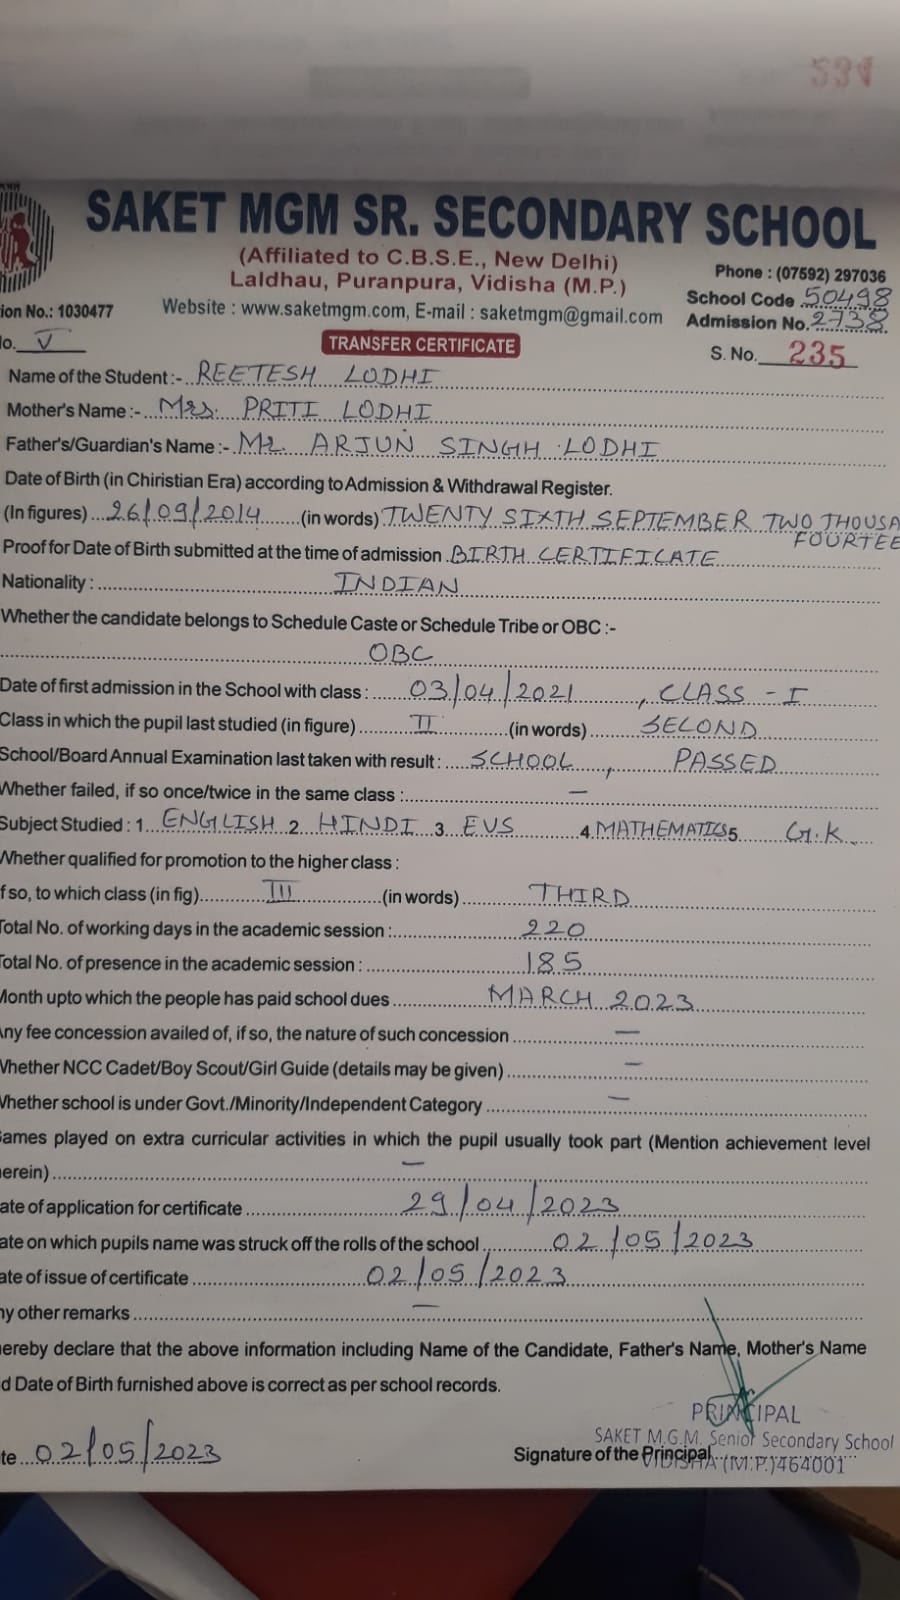 234
SAKET MGM SR. SECONDARY SCHOOL
(Affiliated to C.B.S.E., New Delhi)
Laldhau, Puranpura, Vidisha (M.P.)
Phone : (07592) 297036
School Code 50498
tion No.: 1030477 Website : www.saketmgm.com, E-mail : saketmgm@gmail.com Admission No. 2738
No. V TRANSFER CERTIFICATE S. No. 235
Name of the Student :- REETESH LODHI
Mother's Name :- Mrs. PRITI LODHI
Father's/Guardian's Name :- Mr. ARJUN SINGH LODHI
Date of Birth (in Chiristian Era) according to Admission & Withdrawal Register.
(In figures) 26/09/2014 (in words) TWENTY SIXTH SEPTEMBER TWO THOUSA
FOURTEE
Proof for Date of Birth submitted at the time of admission BIRTH CERTIFICATE
Nationality : INDIAN
Whether the candidate belongs to Schedule Caste or Schedule Tribe or OBC :-
OBC
Date of first admission in the School with class : 03/04/2021, CLASS - I
Class in which the pupil last studied (in figure) II (in words) SECOND
School/Board Annual Examination last taken with result : SCHOOL, PASSED
Whether failed, if so once/twice in the same class : —
Subject Studied : 1. ENGLISH 2. HINDI 3. EVS 4. MATHEMATICS 5. G.K.
Whether qualified for promotion to the higher class :
f so, to which class (in fig) III (in words) THIRD
Total No. of working days in the academic session : 220
Total No. of presence in the academic session : 185
Month upto which the people has paid school dues MARCH 2023
Any fee concession availed of, if so, the nature of such concession —
Whether NCC Cadet/Boy Scout/Girl Guide (details may be given) —
Whether school is under Govt./Minority/Independent Category —
Games played on extra curricular activities in which the pupil usually took part (Mention achievement level
herein) —
ate of application for certificate 29/04/2023
ate on which pupils name was struck off the rolls of the school 02/05/2023
ate of issue of certificate 02/05/2023
ny other remarks —
hereby declare that the above information including Name of the Candidate, Father's Name, Mother's Name
d Date of Birth furnished above is correct as per school records.
PRINCIPAL
SAKET M.G.M. Senior Secondary School
te 02/05/2023 Signature of the Principal
VIDISHA (M.P.) 464001